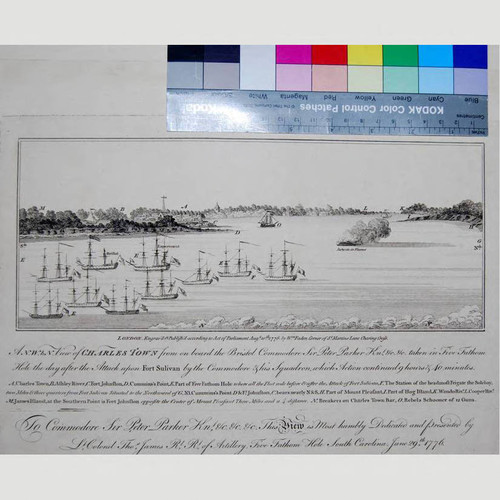 Blue Cyan Green Yellow Red Magenta White
KODAK Color Control Patches
LONDON. Engrav'd & Publish'd according to Act of Parliament Aug.st 10th 1776 by Wm. Faden Corner of St. Martins Lane Charing Cross.
A N.W.b.N. View of CHARLES TOWN from on board the Bristol Commodore Sir Peter Parker Knt. &c. &c. taken in Five Fathom
Hole the day after the Attack upon Fort Sulivan by the Commodore & his Squadron, which Action continued 9 hours & 40 minutes.
A, Charles Town, B, Ashley River, C, Fort Johnston, D, Cummins's Point, E, Part of Five Fathom Hole where all the Fleet rode before & after the Attack of Fort Sulivan, F, The Station of the headmost Frigate the Solebay,
two Miles & three quarters from Fort Sulivan
Part of Mount Pleasant, I, Part of Hog Island
at the Southern Point is Fort Johnston opposite the Center of Mount Pleasant Three Miles and a ½ distance. N, Breakers on Charles Town Bar, O, Rebels Schooner of 12 Guns.
To Commodore Sir Peter Parker Knt. &c. &c. &c. This View is Most humbly Dedicated and presented by
Lt. Colonel Thos. James Rl. Rt. of Artillery. Five Fathom Hole South Carolina, June 29.th 1776.